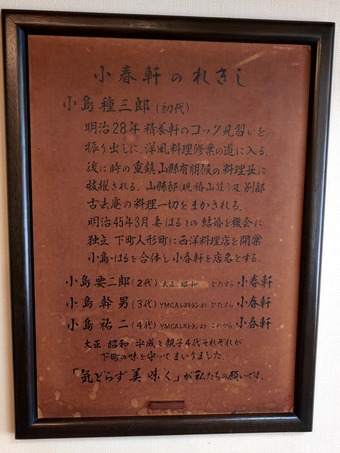 小春軒のれきし
小島種三郎(初代)
明治28年 精養軒のコック見習いを
振り出しに、洋風料理修業の道に入る。
後に時の重鎮山縣有朋候の料理長に
抜擢される。山縣邸(現椿山荘)又別邸
古去庵の料理一切をまかされる。
明治45年3月 妻はるとの結婚を機会に
独立 下町人形町に西洋料理店を開業
小島・はるを合体し小春軒を店名とする。
小島要二郎(2代) 大正 昭和 ひたすら 小春軒
小島幹男(3代) YMCAレストランより ひたすら 小春軒
小島祐二(4代) YMCAレストランより これから 小春軒
大正 昭和 平成と親子4代それぞれが
下町の味を守ってまいりました。
「気どらず美味く」が私たちの願いです。